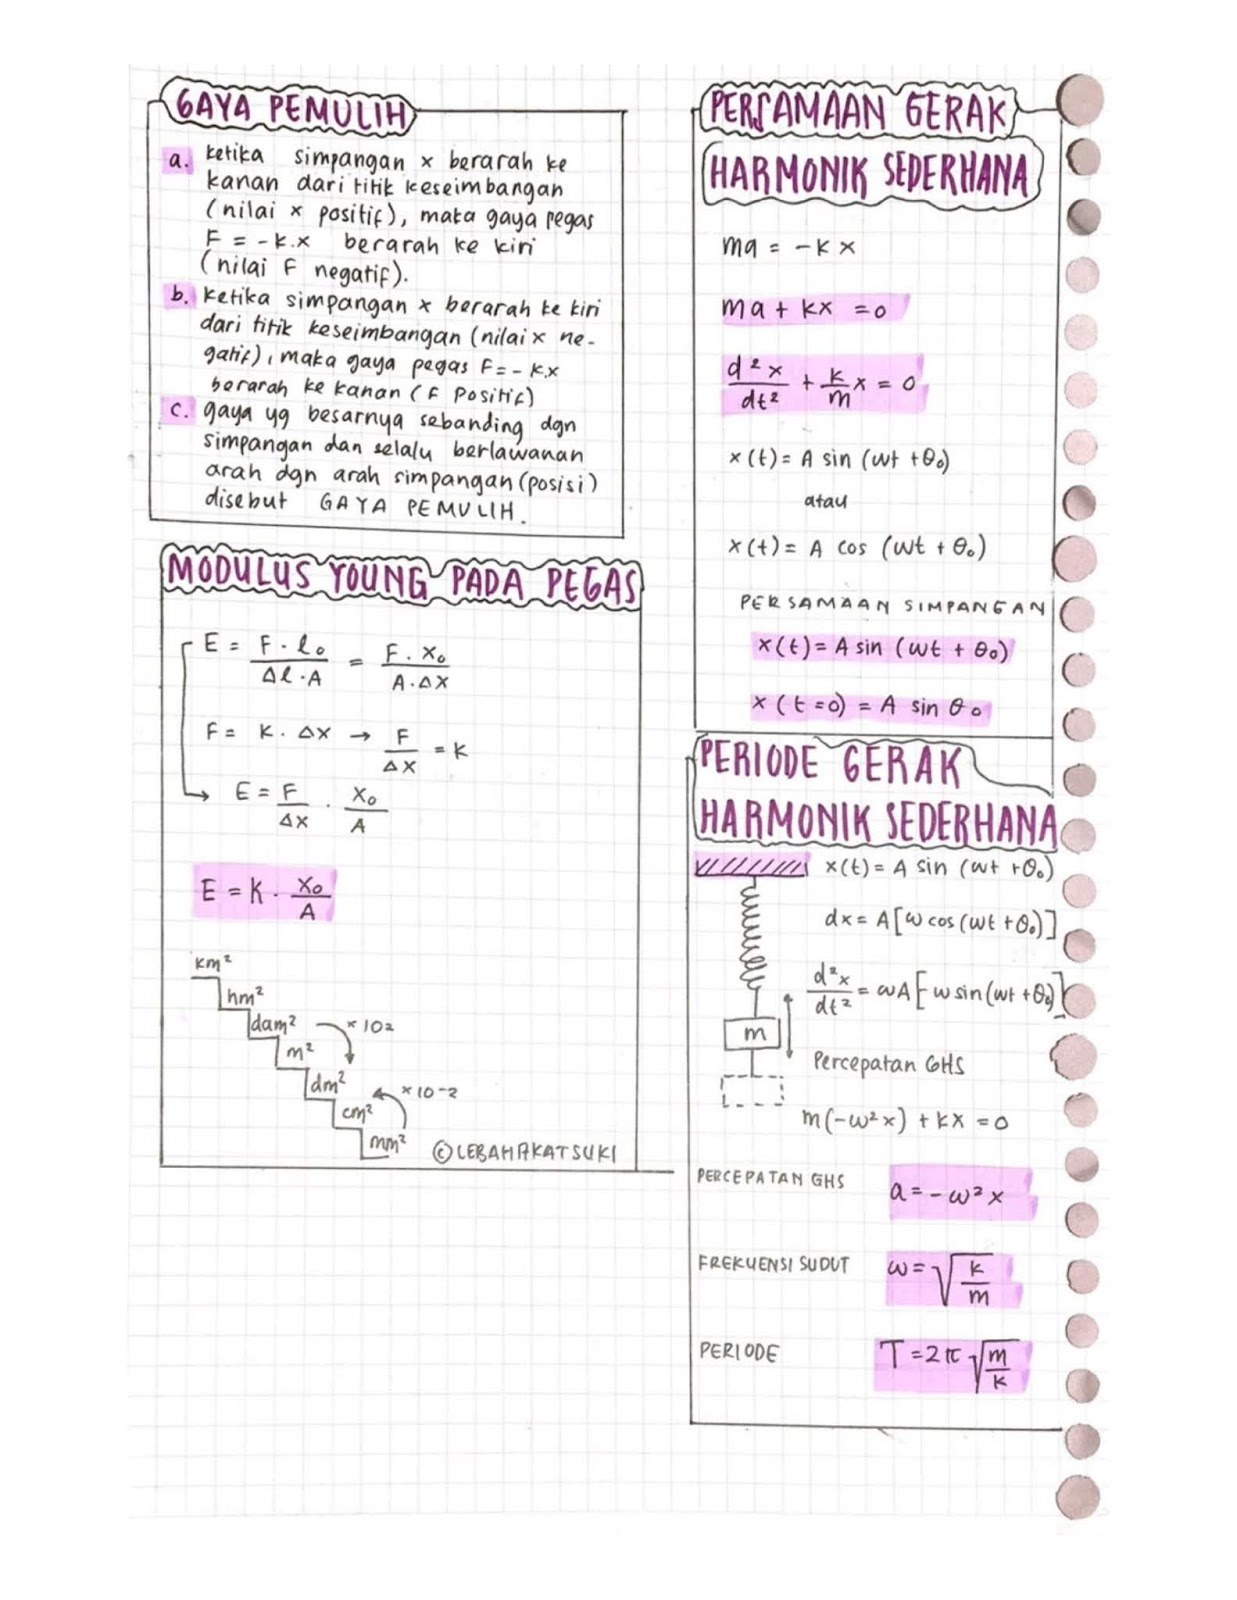 GAYA PEMULIH
a. ketika simpangan x berarah ke
kanan dari titik keseimbangan
(nilai x positif), maka gaya pegas
F = -k.x berarah ke kiri
(nilai F negatif).
b. ketika simpangan x berarah ke kiri
dari titik keseimbangan (nilai x ne-
gatif), maka gaya pegas F = -k.x
berarah ke kanan (F Positif)
c. gaya yg besarnya sebanding dgn
simpangan dan selalu berlawanan
arah dgn arah simpangan (posisi)
disebut GAYA PEMULIH.
MODULUS YOUNG PADA PEGAS
E = F . l₀ / Δl . A = F . x₀ / A . Δx
F = k . Δx → F / Δx = k
E = F / Δx . x₀ / A
E = k . x₀ / A
km²
hm²
dam² × 102
m²
dm²
× 10-2
cm²
mm²
©LEBAHAKATSUKI
PERSAMAAN GERAK
HARMONIK SEDERHANA
ma = -k x
ma + kx = 0
d²x / dt² + k / m x = 0
x(t) = A sin (ωt + θ₀)
atau
x(t) = A cos (ωt + θ₀)
PERSAMAAN SIMPANGAN
x(t) = A sin (ωt + θ₀)
x (t=0) = A sin θ₀
PERIODE GERAK
HARMONIK SEDERHANA
x(t) = A sin (ωt + θ₀)
dx = A[ω cos (ωt + θ₀)]
d²x / dt² = ωA[-ω sin(ωt + θ₀)]
m
Percepatan GHS
m(-ω²x) + kx = 0
PERCEPATAN GHS a = -ω²x
FREKUENSI SUDUT ω = √k/m
PERIODE T = 2π √m/k